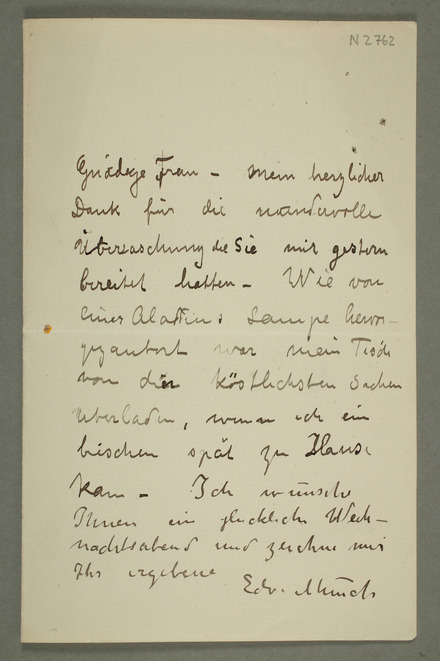 N 2762
Gnädege Frau – mein herzlicher
Dank für die wundervolle
Überraschung die Sie mir gestern
bereitet hatten – Wie von
einer Aladdins Lampe hervor-
gezaubert war mein Tisch
von den köstlichsten Sachen
überladen, wenn ich ein
bischen spät zu Hause
kam – Ich wünsche
Ihnen ein glückliche Weih-
nachtsabend und zeichne mir
Ihr ergebene
Edv. Munch